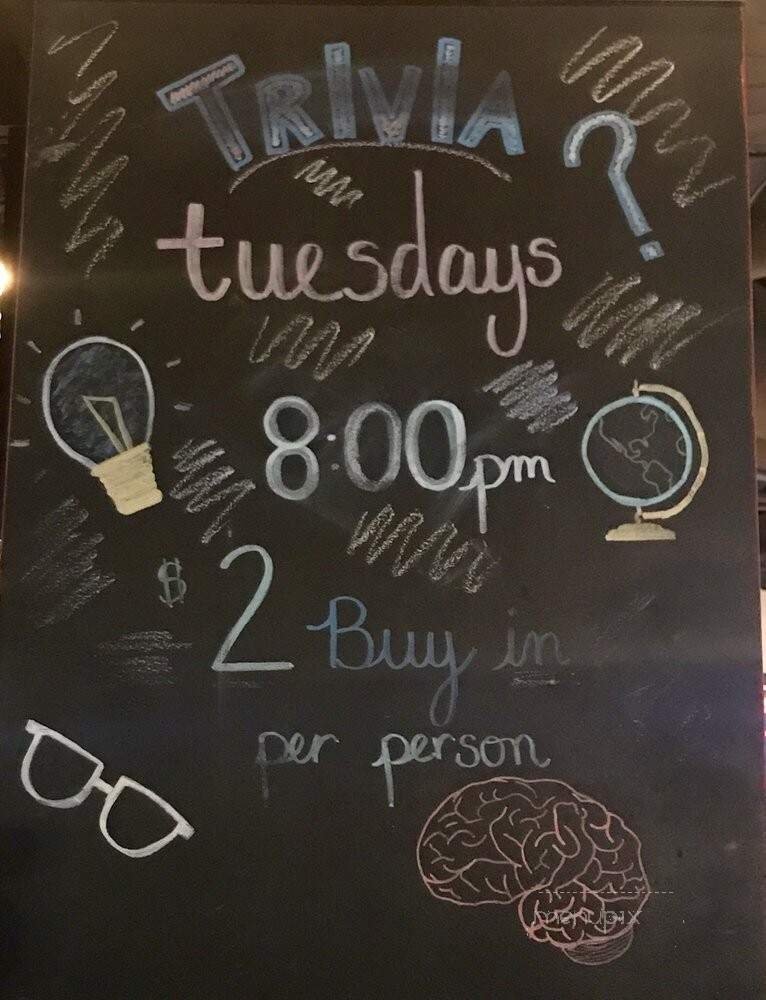 TRIVIA
tuesdays ?
8:00 pm
$2 Buy in
per person
menupix